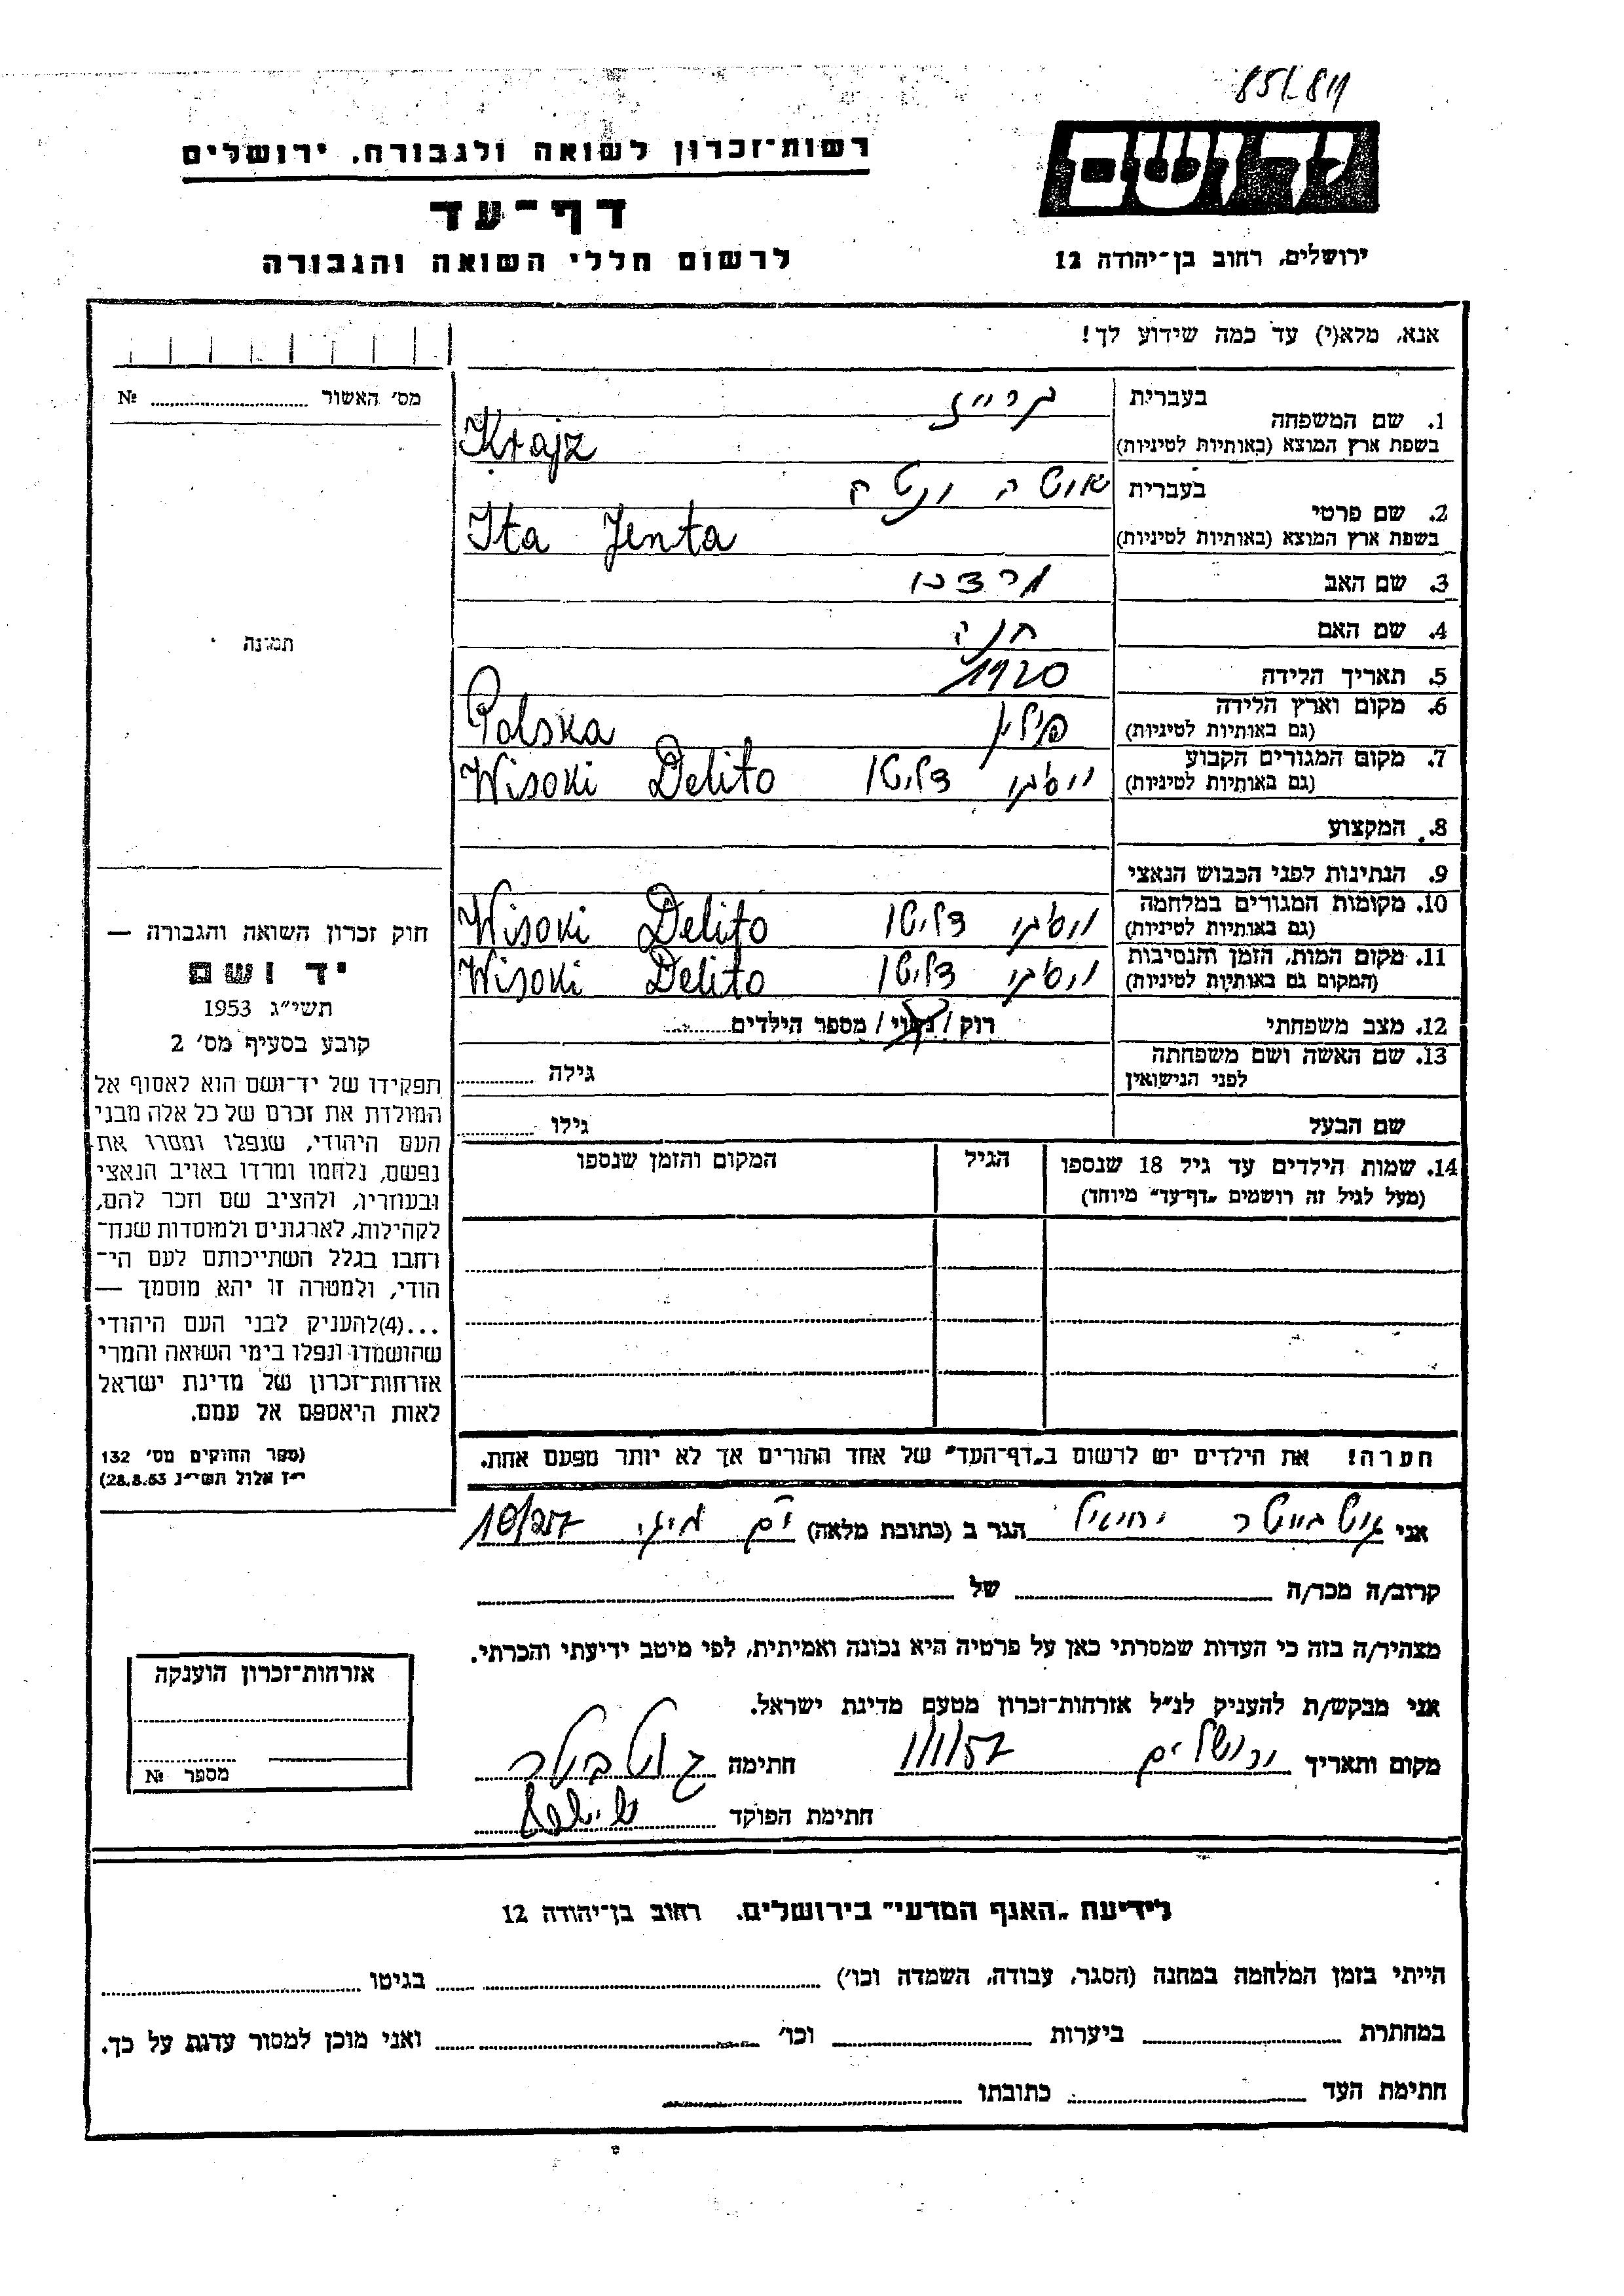 רשות־זכרון לשואה ולגבורה. ירושלים
דף־עד
לרשום חללי השואה והגבורה
יד ושם
ירושלים, רחוב בן־יהודה 12
אנא, מלא(י) עד כמה שידוע לך!
מס׳ האשור № 
1. שם המשפחה
בעברית קרייז
בשפת ארץ המוצא (באותיות לטיניות) Krajz
2. שם פרטי
בעברית
בשפת ארץ המוצא (באותיות לטיניות) Ita Jenta
3. שם האב מרדכי
4. שם האם חנה
5. תאריך הלידה 1920
6. מקום וארץ הלידה
(גם באותיות לטיניות) פולין Polska
7. מקום המגורים הקבוע
(גם באותיות לטיניות) Wisoki Delito
8. המקצוע
9. הנתינות לפני הכבוש הנאצי
10. מקומות המגורים במלחמה
(גם באותיות לטיניות) Wisoki Delito
11. מקום המות, הזמן והנסיבות
(המקום גם באותיות לטיניות) Wisoki Delito
12. מצב משפחתי רוק / נשוי / מספר הילדים
13. שם האשה ושם משפחתה
לפני הנישואין גילה
שם הבעל גילו
14. שמות הילדים עד גיל 18 שנספו הגיל המקום והזמן שנספו
(מעל לגיל זה רושמים „דף־עד״ מיוחד)
הערה! את הילדים יש לרשום ב„דף־העד״ של אחד ההורים אך לא יותר מפעם אחת.
תמונה
חוק זכרון השואה והגבורה —
יד ושם
תשי״ג 1953
קובע בסעיף מס׳ 2
תפקידו של יד־ושם הוא לאסוף אל
המולדת את זכרם של כל אלה מבני
העם היהודי, שנפלו ומסרו את
נפשם, נלחמו ומרדו באויב הנאצי
ובעוזריו, ולהציב שם וזכר להם,
לקהילות, לארגונים ולמוסדות שנח־
רבו בגלל השתייכותם לעם הי־
הודי, ולמטרה זו יהא מוסמך —
...(4)להעניק לבני העם היהודי
שהושמדו ונפלו בימי השואה והמרי
אזרחות־זכרון של מדינת ישראל
לאות היאספם אל עמם.
(ספר החוקים מס׳ 132
י״ז אלול תשי״ג 28.8.53)
אני יחיאל הגר ב (כתובת מלאה)
קרוב/ה מכר/ה של
מצהיר/ה בזה כי העדות שמסרתי כאן על פרטיה היא נכונה ואמיתית, לפי מיטב ידיעתי והכרתי.
אני מבקש/ת להעניק לנ״ל אזרחות־זכרון מטעם מדינת ישראל.
מקום ותאריך ירושלים 1/1/57 חתימה
חתימת הפוקד
אזרחות־זכרון הוענקה
מספר №
לידיעת „האגף המדעי״ בירושלים. רחוב בן־יהודה 12
הייתי בזמן המלחמה במחנה (הסגר, עבודה, השמדה וכו׳) בגיטו
במחתרת ביערות וכו׳ ואני מוכן למסור עדות על כך.
חתימת העד כתובתו